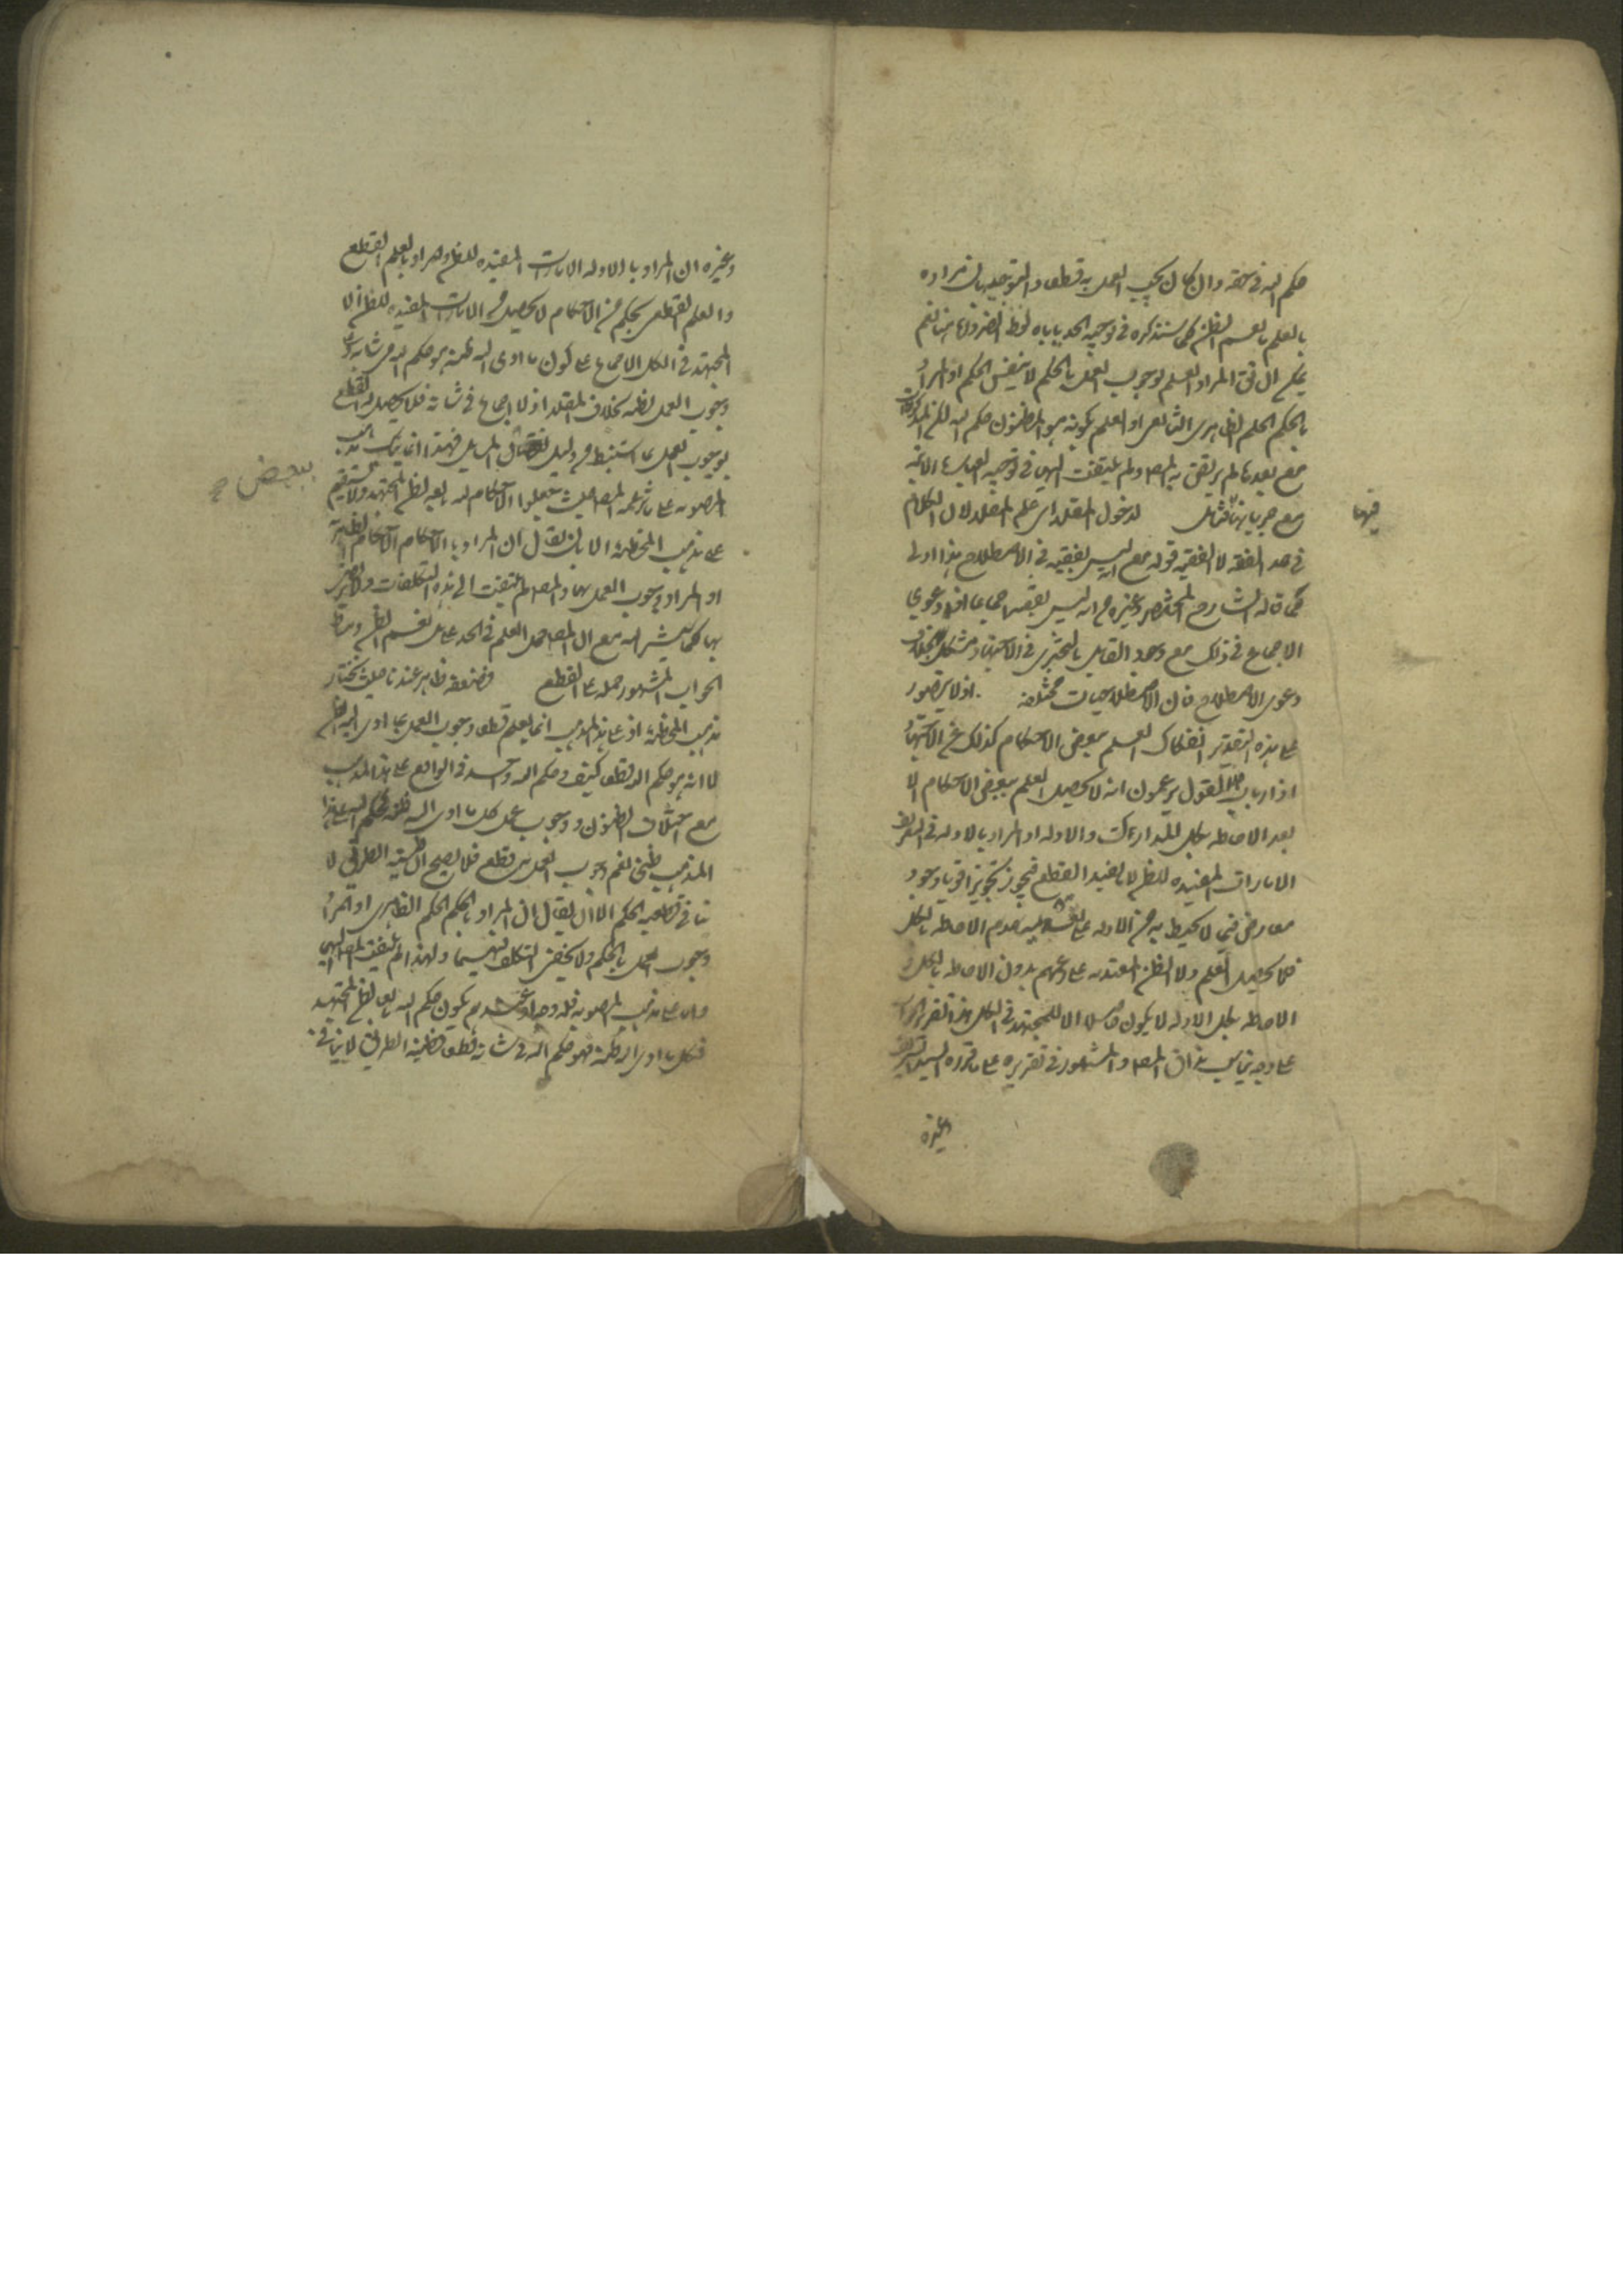 حكم الله في حقه وان كان يجب العمل به قطعا والتوجيه بان مراده
بالعلم ما يعم الظن كما سنذكره في توجيه الحد ياباه لفظ الضرورة هنا نعم
يمكن ان المراد العلم بوجوب العمل بالحكم لا بنفس الحكم او المراد
بالحكم الحكم الظاهري او العلم بكونه هو المظنون حكم الله لكن
مع بعدها لم يرتض به المصـ ولم يلتفت اليها في توجيه العبارة الاتية
مع جريانها فيها فتامل لدخول المقلد اي علم المقلد لان الكلام
فيها
في حد الفقه لا الفقيه قوله مع انه ليس بفقيه في الاصطلاح هذا اولى
مما قاله الشارح المختصر وغيره من انه ليس بفقيه اجماعا اذ دعوى
الاجماع في ذلك مع وجود القايل بالتجزي في الاجتهاد مشكل بخلاف
دعوى الاصطلاح فان الاصطلاحات مختلفة اذ لا يتصور
على هذه التقدير انفكاك العلم ببعض الاحكام كذلك عن الاجتهاد
اذ ارباب هذا القول يزعمون انه لا يحصل العلم ببعض الاحكام الا
بعد الاحاطه بكل المدارك والادله اذ المراد بالادله في التعريف
الامارات المفيده للظن لا يفيد القطع فيجوز تجويزا قويا وجود
معارض فيما لا يحيط به من الادله على تقدير عدم الاحاطه بالكل
فلا يحصل العلم ولا الظن المعتد به على زعمهم بدون الاحاطه بالكل و
الاحاطه بكل الادله لا يكون حاصلا الا للمجتهد في الكل هذا تقرير الجواب
على وجه يناسب مذاق المصـ والمشهور في تقريره على ما قرره السيد الشريف
وغيره
وغيره ان المراد بالادله الامارات المفيده للظن والمراد بالعلم القطع
والعلم القطعي بحكم من الاحكام لا يحصل من الامارات المفيده للظن الا
المجتهد في الكل للاجماع على كون ما ادى اليه ظنه هو حكم الله في شانه و
وجوب العمل بظنه بخلاف المقلد اذ لا اجماع في شانه فلا يحصل له القطع
بوجوب العمل بما استنبط من دليل بعض المسايل فهذا انما يناسب مذهب
بعض
المصوبه على ما زعمه المصـ حيث جعلوا الاحكام تابعه لظن المجتهد ولا يستقيم
على مذهب المخطئة الا بان يقال ان المراد بالاحكام الاحكام الظاهرية
او المراد وجوب العمل بها والمصـ لم يلتفت الى هذه التكلفات ولا يرضى
بها كما سيشير اليه مع ان المصـ حمل العلم في الحد على ما يعم الظن ومناط
الجواب المشهور حمله على القطع فضعفه ظاهر عندنا حيث نختار
مذهب المخطئة اذ على هذا المذهب انما يعلم قطعا وجوب العمل بما ادى اليه الظن
لا انه هو حكم الله قطعا كيف وحكم الله واحد في الواقع على هذا المذهب
مع اختلاف الظنون ووجوب عمل كل بما ادى اليه ظنه فحكم الله على هذا
المذهب ظني نعم وجوب العمل به قطعي فلا يصح ان ظنية الطريق لا
تنافي قطعية الحكم الا ان يقال ان المراد بالحكم الحكم الظاهري او المراد
وجوب العمل بالحكم ولا يخفى التكلف فيهما ولهذا لم يلتفت المصـ اليهما
واما على مذهب المصوبه فله وجه اذ عندهم يكون حكم الله تابعا لظن المجتهد
فكل ما ادى اليه ظنه فهو حكم الله في شانه قطعا فظنية الطريق لا ينافي